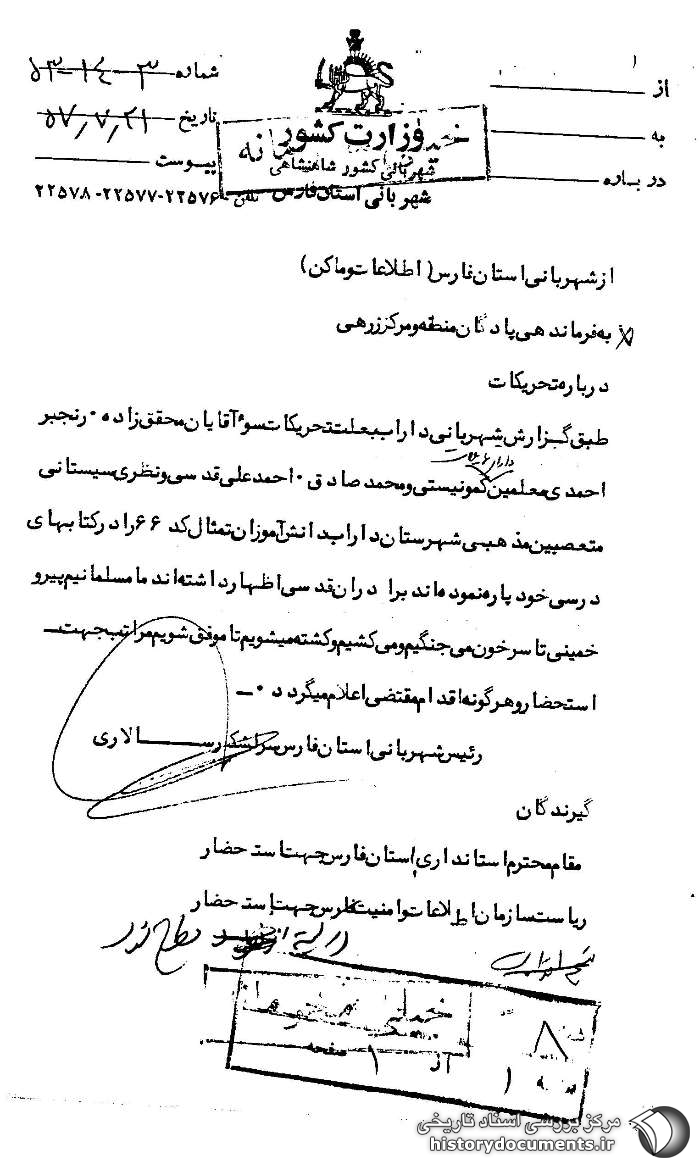 از
به
درباره
وزارت کشور
شهربانی کشور شاهنشاهی
شهربانی استان فارس
شماره ۳-۱۴-۵۳
تاریخ ۵۷٫۷٫۲۱
پیوست
تلفن ۲۲۵۷۶-۲۲۵۷۷-۲۲۵۷۸
از شهربانی استان فارس (اطلاعات و ماکن)
به فرماندهی پادگان منطقه و مرکز زرهی
درباره تحریکات
طبق گزارش شهربانی داراب بعلت تحریکات سوء آقایان محقق زاده ۰ رنجبر
احمدی معلمین کمونیستی و محمد صادق ۰ احمد علی قدسی و نظری سیستانی
متعصبین مذهبی شهرستان داراب دانش آموزان تمثال کد ۶۶ را در کتابهای
درسی خود پاره نموده اند برادران قدسی اظهار داشته اند ما مسلمانیم پیرو
خمینی تا سر خون می جنگیم و می کشیم و کشته میشویم تا موفق شویم مراتب جهت
استحضار و هرگونه اقدام مقتضی اعلام میگردد ۰ــ
رئیس شهربانی استان فارس سرلشکر ســـالاری
گیرندگان
مقام محترم استانداری استان فارس جهت استحضار
ریاست سازمان اطلاعات و امنیت فارس جهت استحضار
۸
۱ از ۱ صفحه
مرکز بررسی اسناد تاریخی
historydocuments.ir